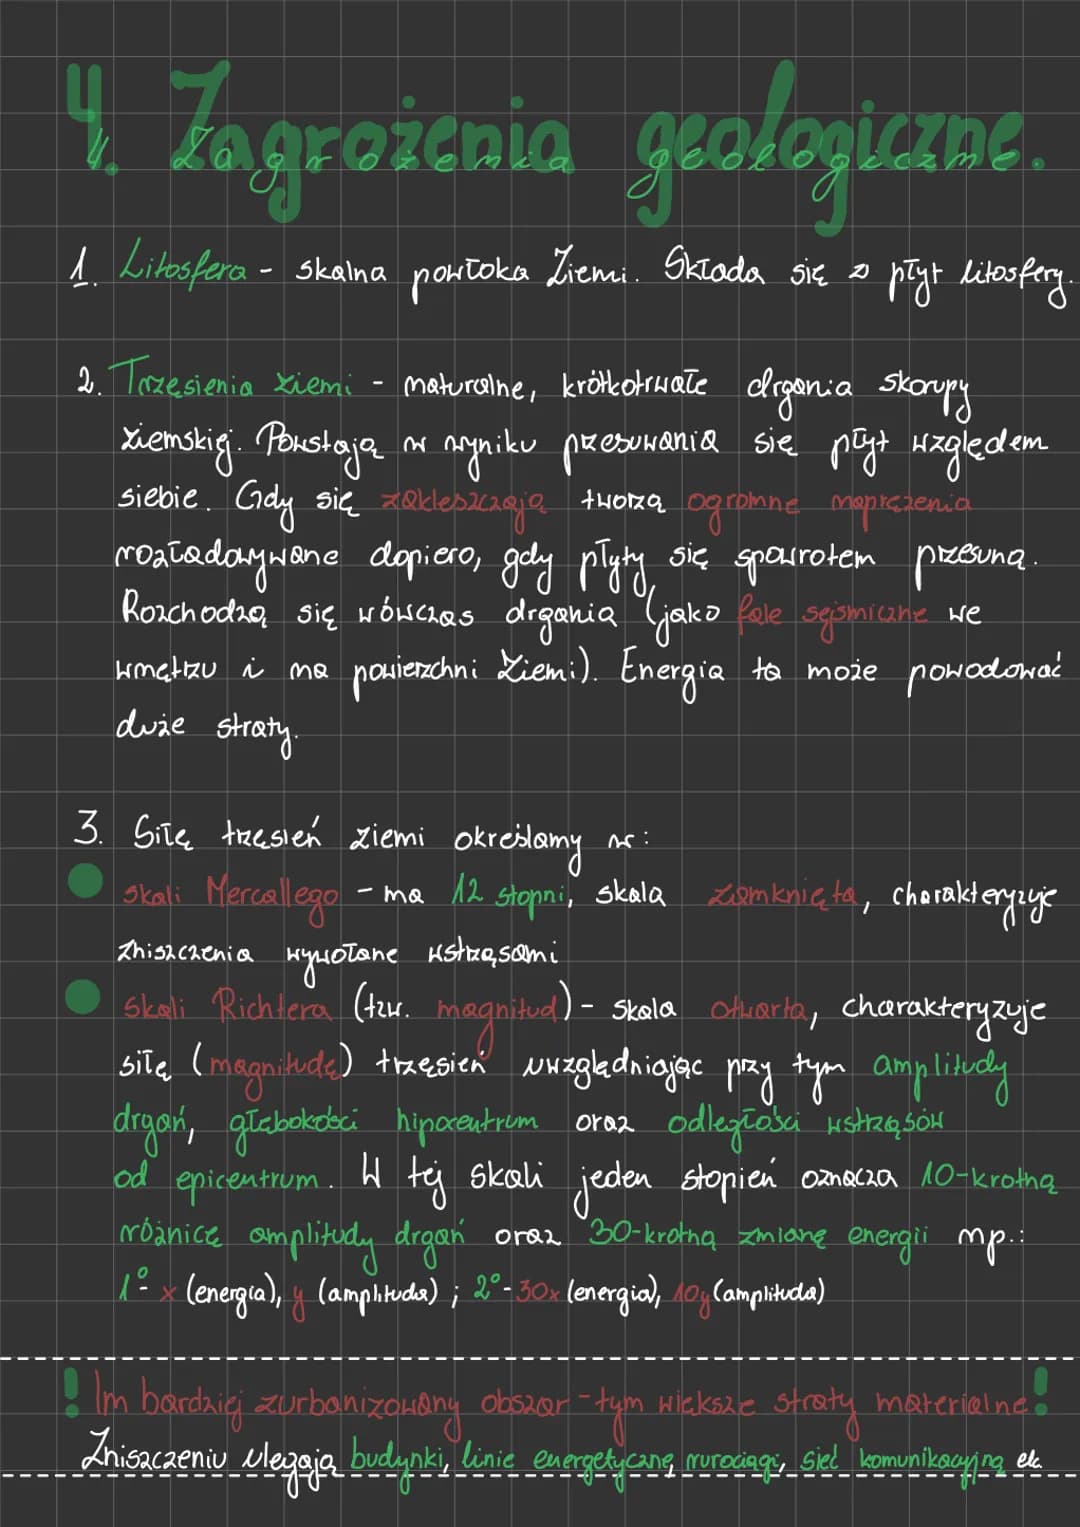 4. Zagrożenia geologiczne.
4. Zagrożenia geologiczne.
1. Litosfera - skalna powłoka Ziemi. Składa się z płyt litosfery.
2. Trzęsienia ziemi - naturalne, krótkotrwałe drgania skorupy
ziemskiej. Powstają w wyniku przesuwania się płyt względem
siebie. Gdy się zakleszczają tworzą ogromne naprężenia
rozładowywane dopiero, gdy płyty się spowrotem przesuną.
Rozchodzą się wówczas drgania (jako fale sejsmiczne we
wnętrzu i na powierzchni Ziemi). Energia ta może powodować
duże straty.
3. Siłę trzęsień ziemi określamy w:
skali Mercallego - ma 12 stopni, skala zamknięta, charakteryzuje
zniszczenia wywołane wstrząsami
skali Richtera (tzw. magnitud) - skala otwarta, charakteryzuje
siłę (magnitudę) trzęsień uwzględniając przy tym amplitudy
drgań, głębokości hipocentrum oraz odległości wstrząsów
od epicentrum. W tej skali jeden stopień oznacza 10-krotną
różnicę amplitudy drgań oraz 30-krotną zmianę energii np.:
1° - x (energia), y (amplituda) ; 2° - 30x (energia), 10y (amplituda)
! Im bardziej zurbanizowany obszar - tym większe straty materialne !
Zniszczeniu ulegają budynki, linie energetyczne, rurociągi, sieć komunikacyjna etc.